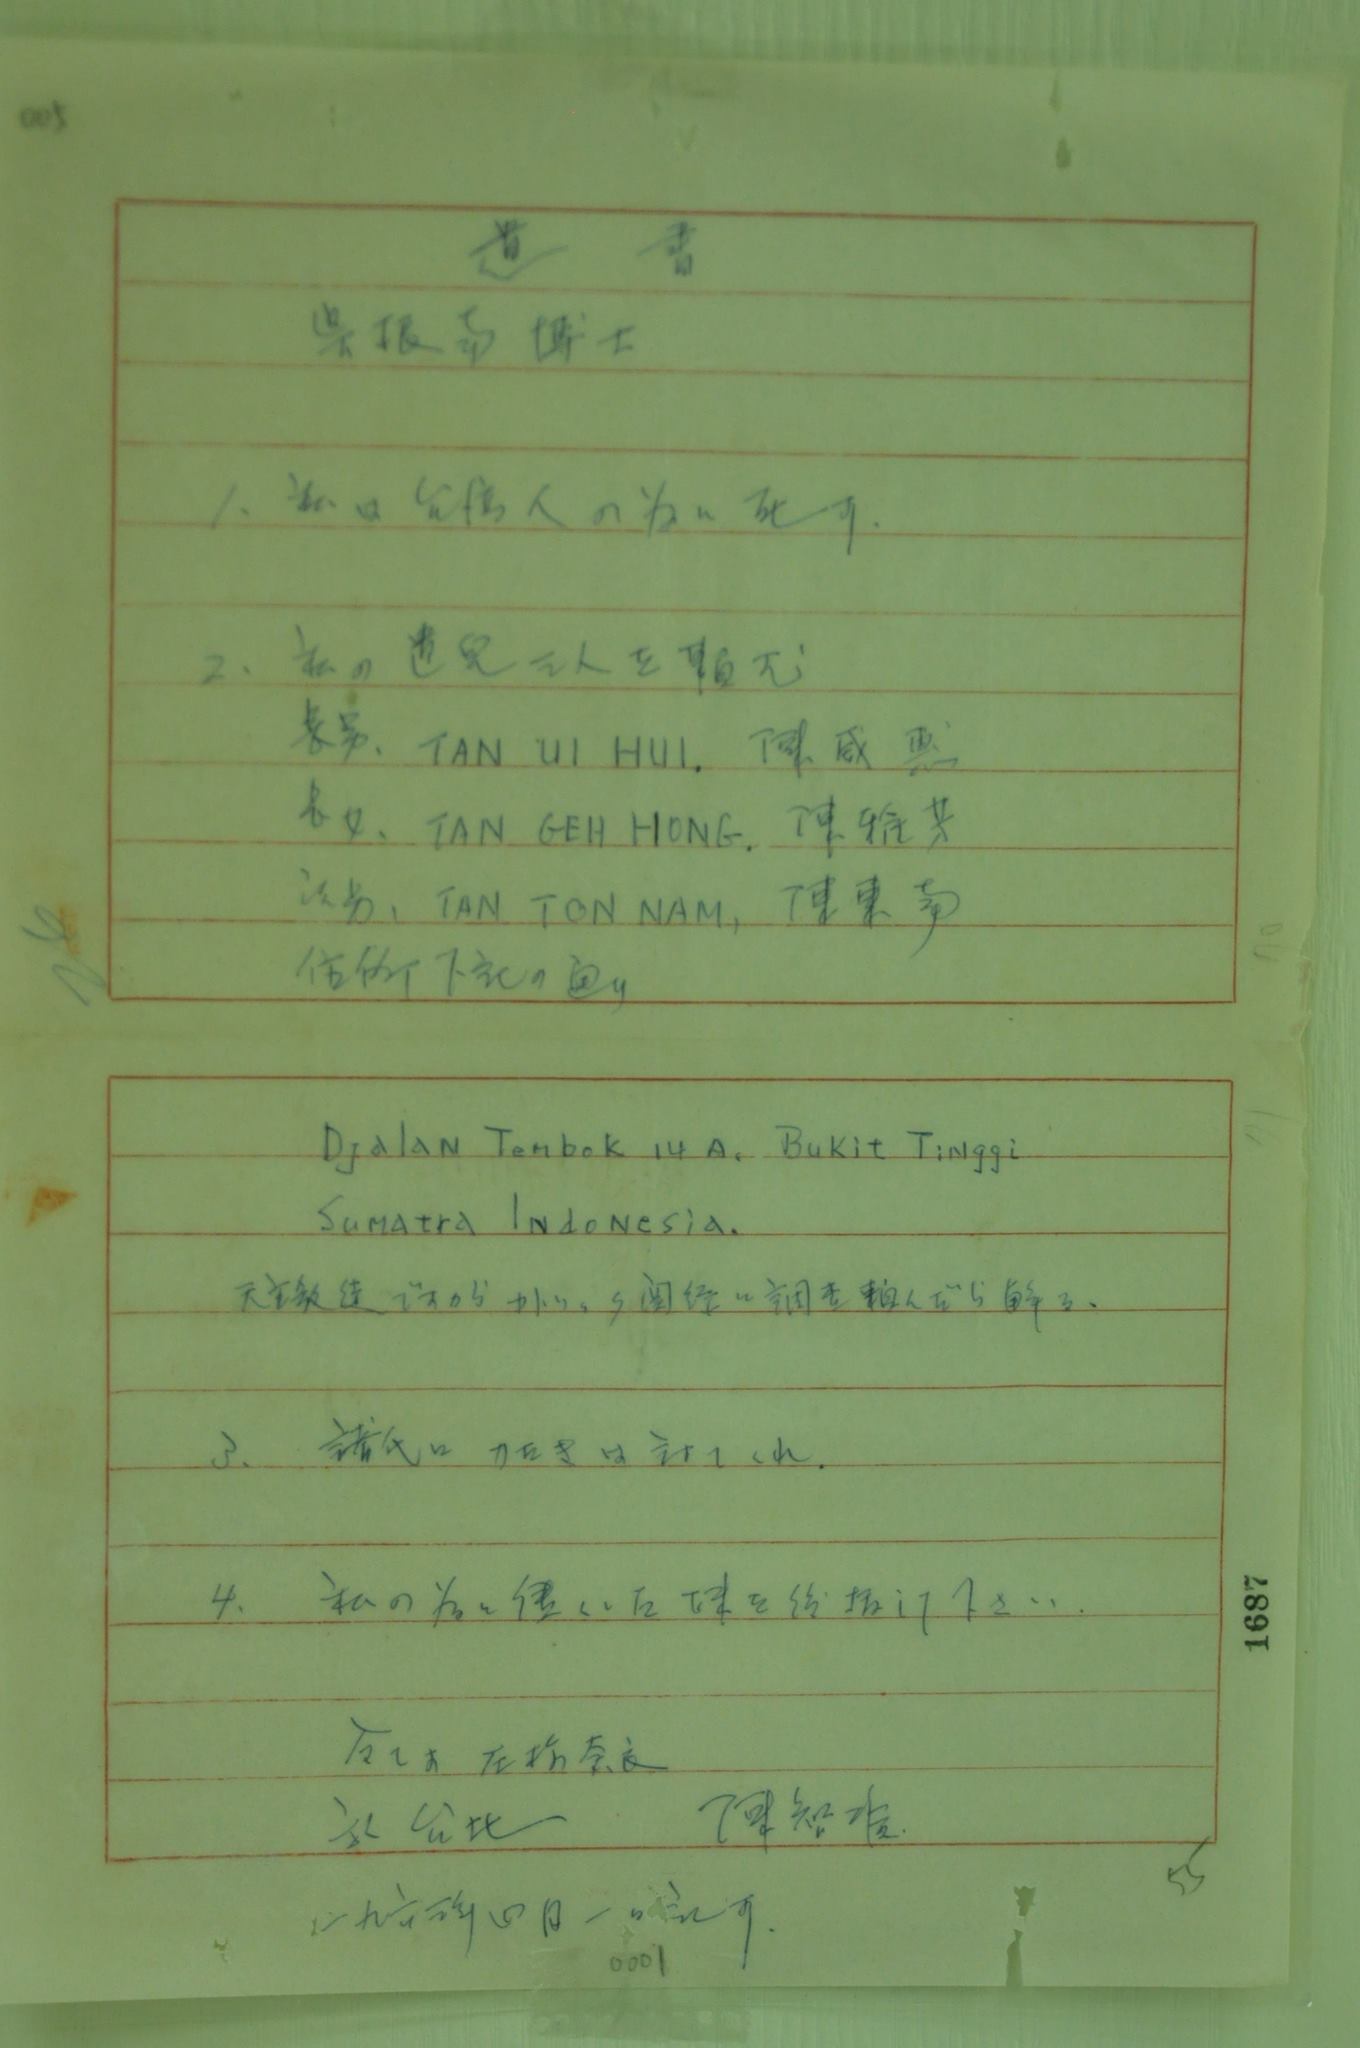 005
遺書
呉振南博士
1. 私は台湾人の為に死す.
2. 私の遺児三人を頼む
長男、TAN UI HUI. 陳威恵
長女、TAN GEH HONG. 陳雅芳
次男、TAN TON NAM, 陳東南
住所下記の通り
Djalan Tembok 14 A. Bukit Tinggi
Sumatra Indonesia.
天主教徒ですから 調査頼んだら解る.
3. 諸氏に は許してくれ.
4. 私の為に 下さい.
在横奈良
於台北 陳智雄
一九六三年四月一日記す.
0001
1687
55